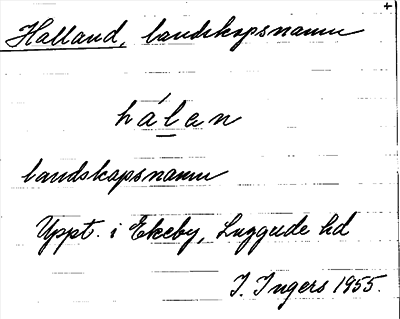 +
Halland, landskapsnamn
hálan
landskapsnamn
Uppt. i Ekeby, Luggude hd
I. Ingers 1955.